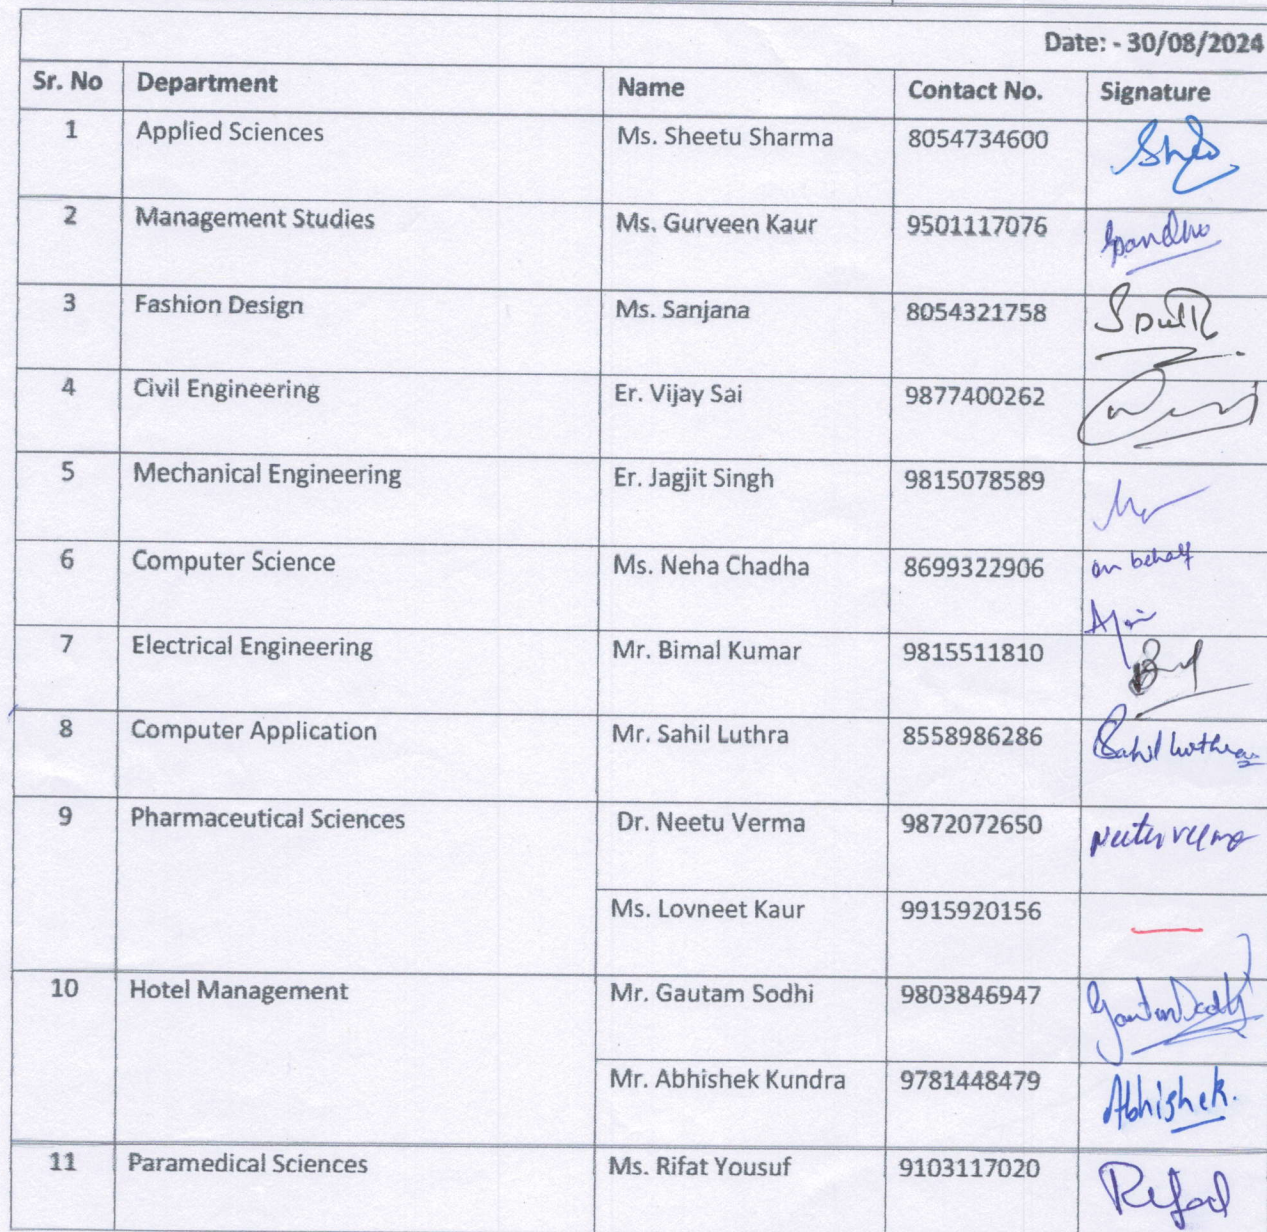 Date: - 30/08/2024
Sr. No Department Name Contact No. Signature
1 Applied Sciences Ms. Sheetu Sharma 8054734600
2 Management Studies Ms. Gurveen Kaur 9501117076
3 Fashion Design Ms. Sanjana 8054321758
4 Civil Engineering Er. Vijay Sai 9877400262
5 Mechanical Engineering Er. Jagjit Singh 9815078589
6 Computer Science Ms. Neha Chadha 8699322906 on behalf
7 Electrical Engineering Mr. Bimal Kumar 9815511810
8 Computer Application Mr. Sahil Luthra 8558986286 Sahil Luthra
9 Pharmaceutical Sciences Dr. Neetu Verma 9872072650 Neetu Verma
Ms. Lovneet Kaur 9915920156
10 Hotel Management Mr. Gautam Sodhi 9803846947
Mr. Abhishek Kundra 9781448479 Abhishek.
11 Paramedical Sciences Ms. Rifat Yousuf 9103117020